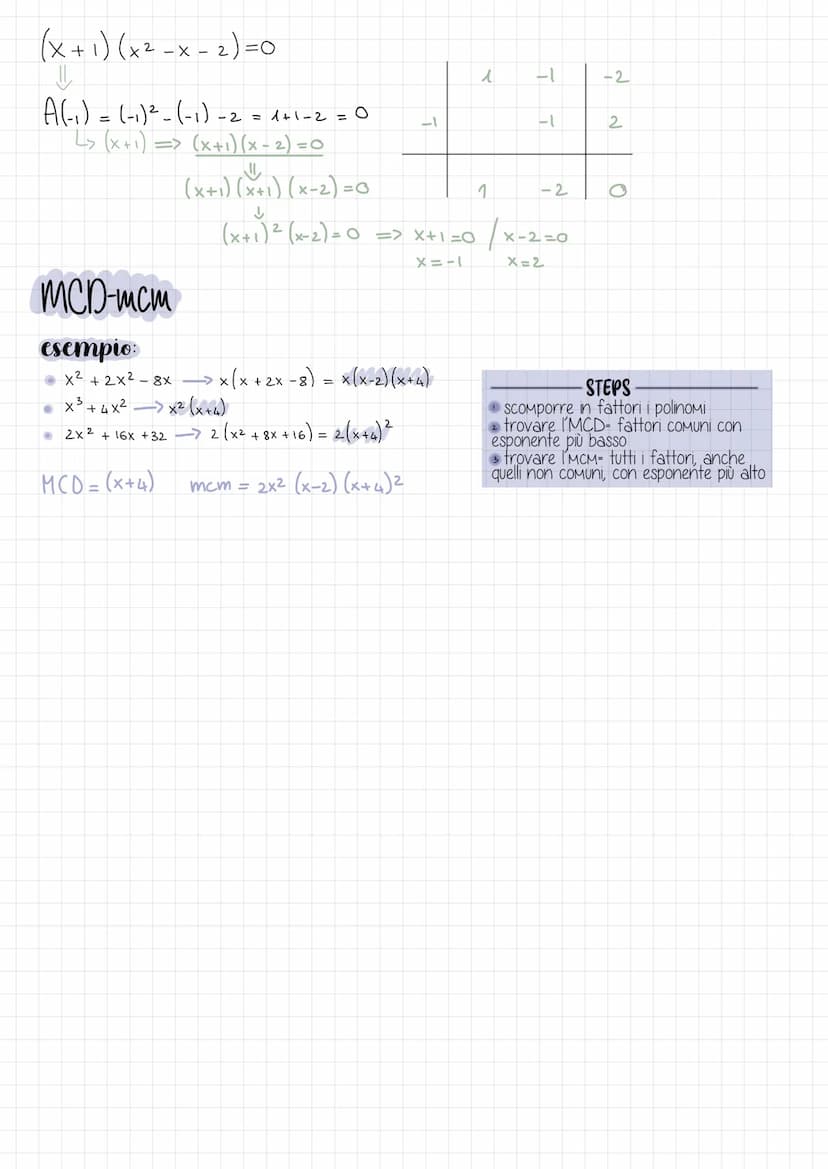 (x+1)(x² -x - 2)=0
⇓
A(-1) = (-1)² - (-1) - 2 = 1+1-2 = 0
↳ (x+1) => (x+1)(x-2)=0
⇓
(x+1)(x+1)(x-2)=0
↓
(x+1)²(x-2)=0 => x+1=0 / x-2=0
x=-1 x=2
1 -1 -2
-1 -1 2
1 -2 0
MCD-mcm
esempio:
x² + 2x² - 8x → x(x + 2x - 8) = x(x-2)(x+4)
x³ + 4x² → x²(x+4)
2x² + 16x + 32 → 2(x² + 8x + 16) = 2(x+4)²
MCD = (x+4) mcm = 2x² (x-2)(x+4)²
STEPS
1 scomporre in fattori i polinomi
2 trovare l'MCD= fattori comuni con
esponente più basso
3 trovare l'mcm= tutti i fattori, anche
quelli non comuni, con esponente più alto